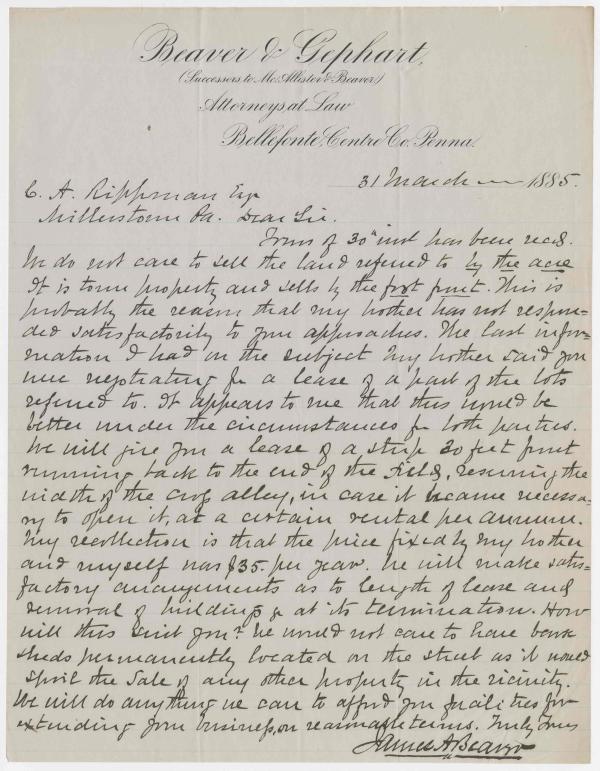 Beaver & Gephart,
(Successors to McAllister & Beaver)
Attorneys at Law
Bellefonte, Centre Co. Penna.
31 March 1885.
C. A. Rippman Esq
Millerstown Pa. Dear Sir.
Yours of 30" inst has been recd.
We do not care to sell the land referred to by the acre
It is town property and sells by the foot front. This is
probably the reason that my mother has not respon=
ded satisfactorily to your approaches. The last infor=
mation I had on the subject my mother said you
were negotiating for a lease of a part of the lots
referred to. It appears to me that this would be
better under the circumstances for both parties.
We will give you a lease of a strip 30 feet front
running back to the end of the field, reserving the
width of the cross alley, in case it became necessa=
ry to open it, at a certain rental per annum.
My recollection is that the price fixed by my mother
and myself was $35. per year. We will make satis=
factory arrangements as to length of lease and
removal of buildings & at its termination. How
will this suit you? We would not care to have bark
sheds permanently located on the street as it would
spoil the sale of any other property in the vicinity.
We will do anything we can to afford you facilities for
extending your business, on reasonable terms. Truly Yours
James A. Beaver